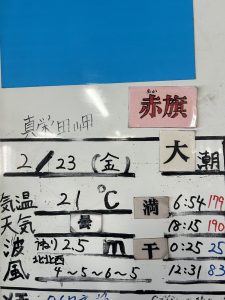 真栄田岬
あか
赤旗
2/23 (金) 大潮
気温 21℃ 満 6:54 179
天気 曇 18:15 190
波 うねり 2.5m 干 0:25 25
風 北北西 4~5~6~5 12:31 83